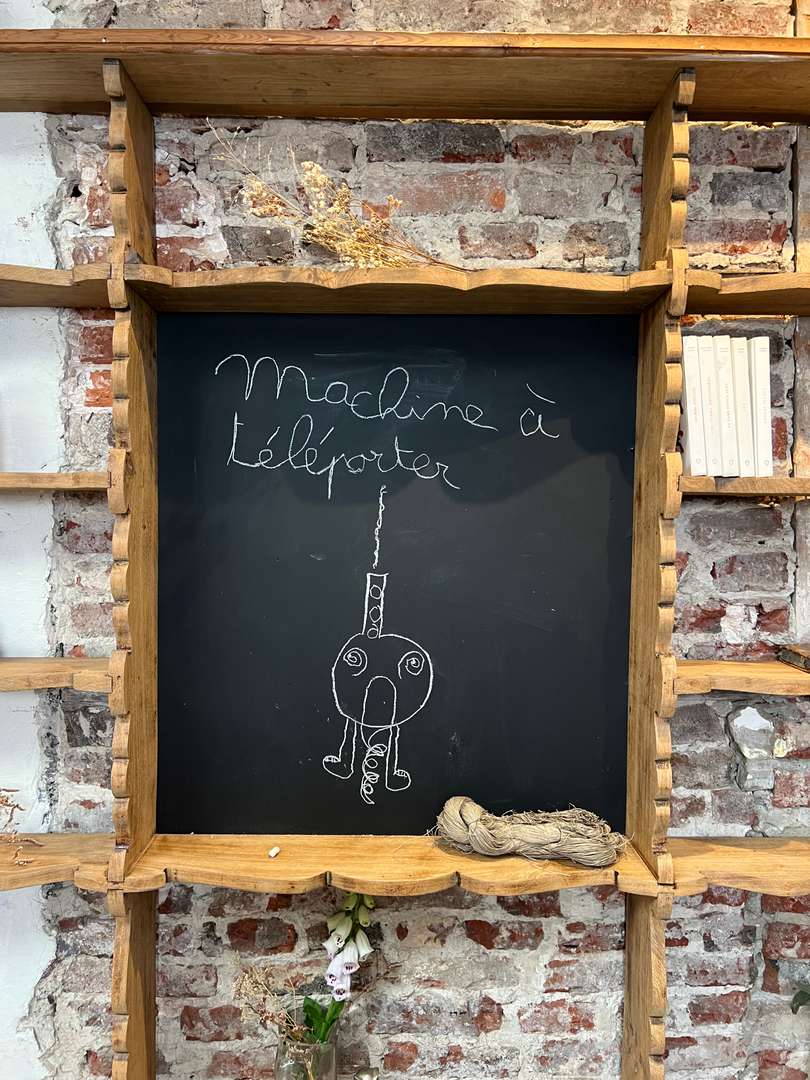 Machine à
téléporter